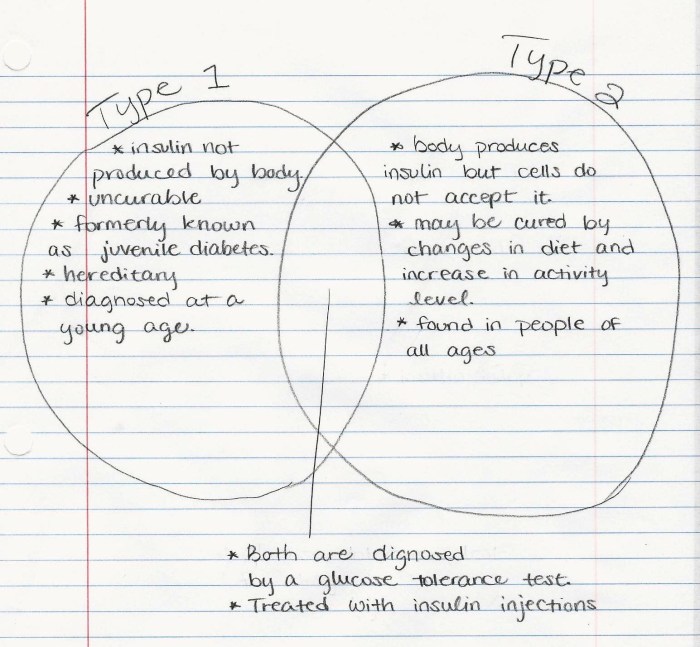 Type 1
* insulin not
produced by body.
* uncurable
* formerly known
as juvenile diabetes.
* hereditary
* diagnosed at a
young age.
Type 2
* body produces
insulin but cells do
not accept it.
* may be cured by
changes in diet and
increase in activity
level.
* found in people of
all ages
* Both are dignosed
by a glucose tolerance test.
* Treated with insulin injections